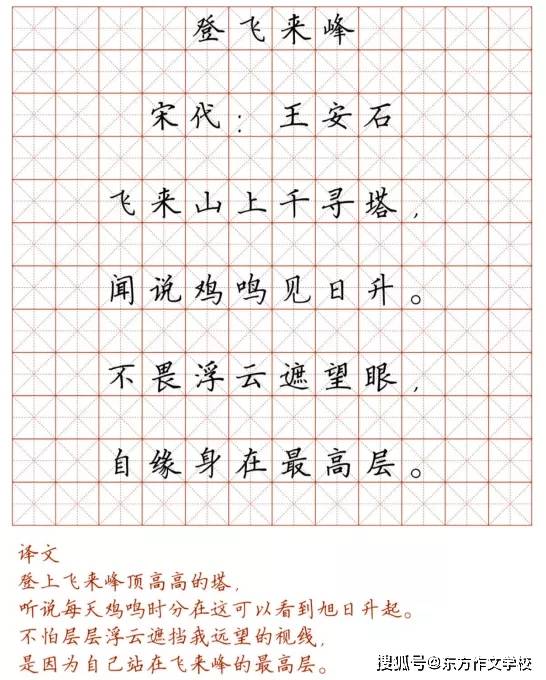 登飞来峰
宋代：王安石
飞来山上千寻塔，
闻说鸡鸣见日升。
不畏浮云遮望眼，
自缘身在最高层。
译文
登上飞来峰顶高高的塔，
听说每天鸡鸣时分在这可以看到旭日升起。
不怕层层浮云遮挡我远望的视线，
是因为自己站在飞来峰的最高层。
搜狐号@东方作文学校